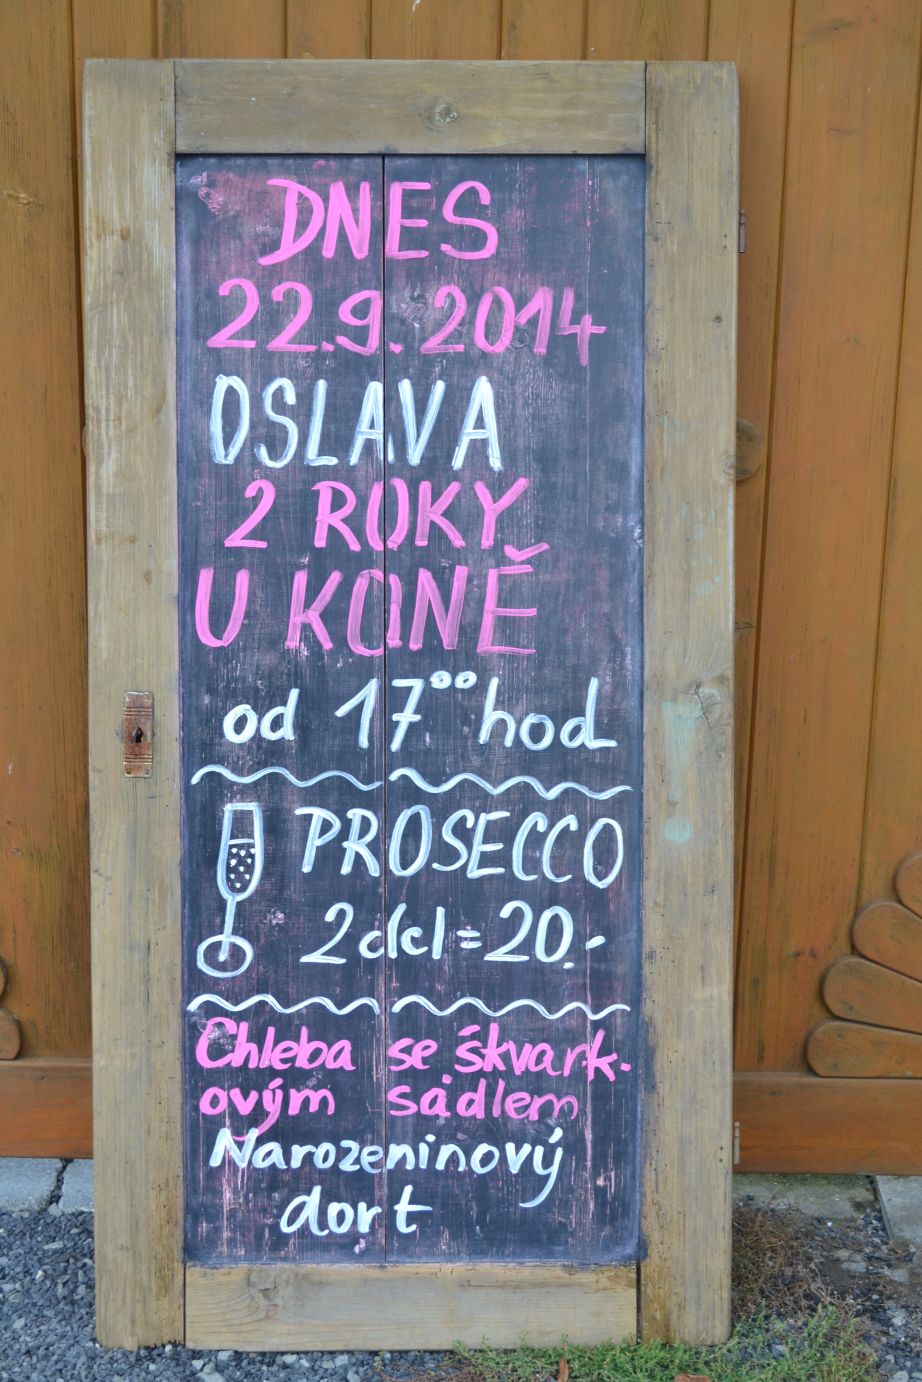 DNES
22.9.2014
OSLAVA
2 ROKY
U KONĚ
od 17°° hod
PROSECCO
2dcl=20.-
Chleba se škvark.
ovým sádlem
Narozeninový
dort